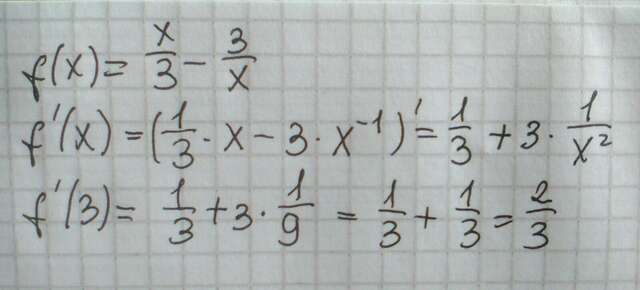 f(x) = x/3 - 3/x
f'(x) = (1/3 · x - 3 · x⁻¹)' = 1/3 + 3 · 1/x²
f'(3) = 1/3 + 3 · 1/9 = 1/3 + 1/3 = 2/3